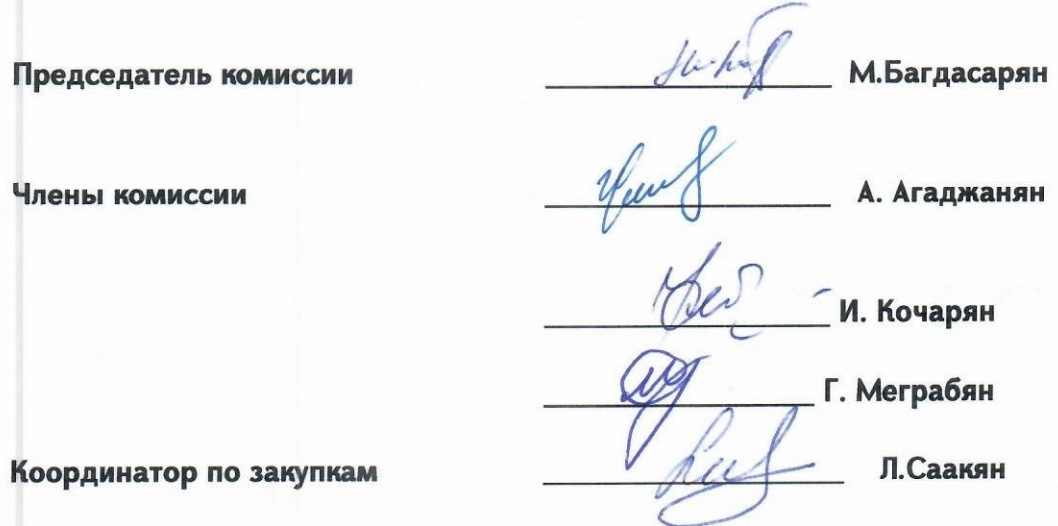 Председатель комиссии М.Багдасарян
Члены комиссии А. Агаджанян
И. Кочарян
Г. Меграбян
Координатор по закупкам Л.Саакян